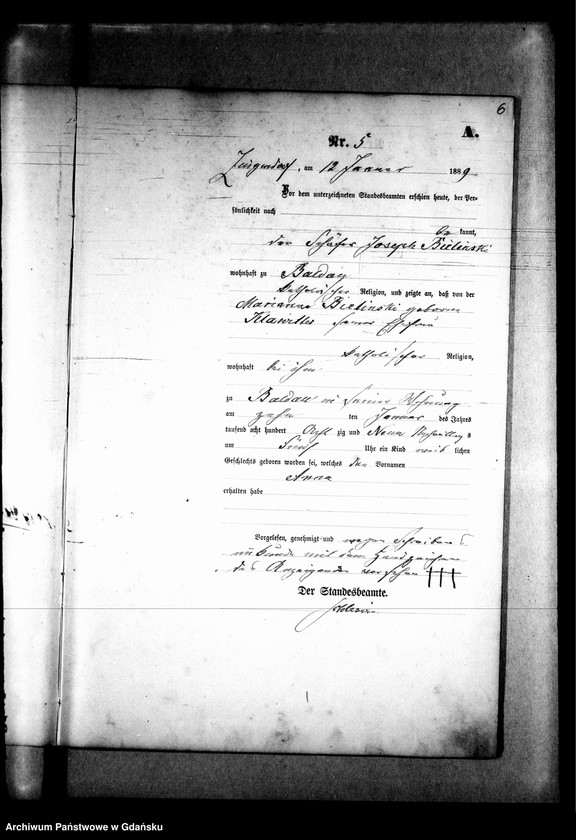 6
A.
Nr. 5
am 12 Januar 1889
Vor dem unterzeichneten Standesbeamten erschien heute, der Per-
sönlichkeit nach
be kannt,
der Schäfer Joseph Bielinski
wohnhaft zu Baldau
katholischer Religion, und zeigte an, daß von der
Marianna Bielinski geborenen
seiner Ehefrau
katholischer Religion,
wohnhaft bei ihm
zu Baldau in seiner Wohnung
am zehn ten Januar des Jahres
tausend acht hundert Acht zig und Neun Vormittags
um fünf Uhr ein Kind weib lichen
Geschlechts geboren worden sei, welches den Vornamen
Anna
erhalten habe
Vorgelesen, genehmigt und wegen Schreibens
unkunde mit dem Handzeichen
des Anzeigenden versehen +++
Der Standesbeamte.
Archiwum Państwowe w Gdańsku